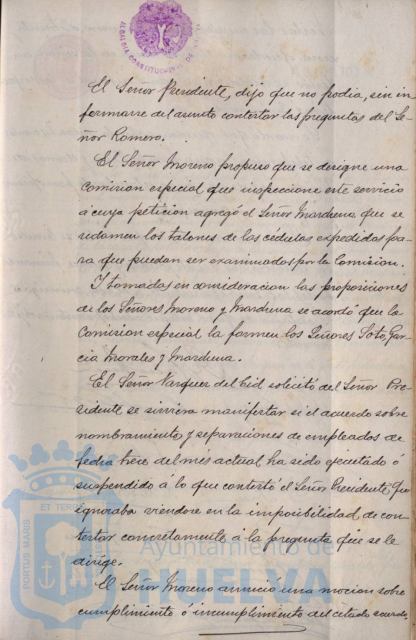 ALCALDIA CONSTITUCIONAL DE
El Señor Presidente, dijo que no podia, sin in
formarse del asunto contestar las preguntas del Se
ñor Romero.
El Señor Moreno propuso que se designe una
Comision especial que inspeccione este servicio
á cuya peticion agregó el Señor Mardena que se
reclamen los talones de las cédulas expedidas pa
ra que puedan ser examinados por la Comision.
Y tomadas en consideracion las proposiciones
de los Señores Moreno y Mardena se acordó que la
Comision especial la formen los Señores Soto, Gar
cia Morales y Mardena.
El Señor Vazquez del Cid solicitó del Señor Pre
sidente se sirviera manifestar si el acuerdo sobre
nombramiento y separaciones de empleados de
fecha trece del mes actual ha sido ejecutado ó
suspendido á lo que contestó el Señor Presidente, que
ignoraba viendose en la imposibilidad de con
testar concretamente á la pregunta que se le
dirige.
El Señor Moreno anunció una mocion sobre
cumplimiento ó incumplimiento del citado acuerdo
PORTUS MARIS ET TERRÆ
Ayuntamiento de
HUELVA